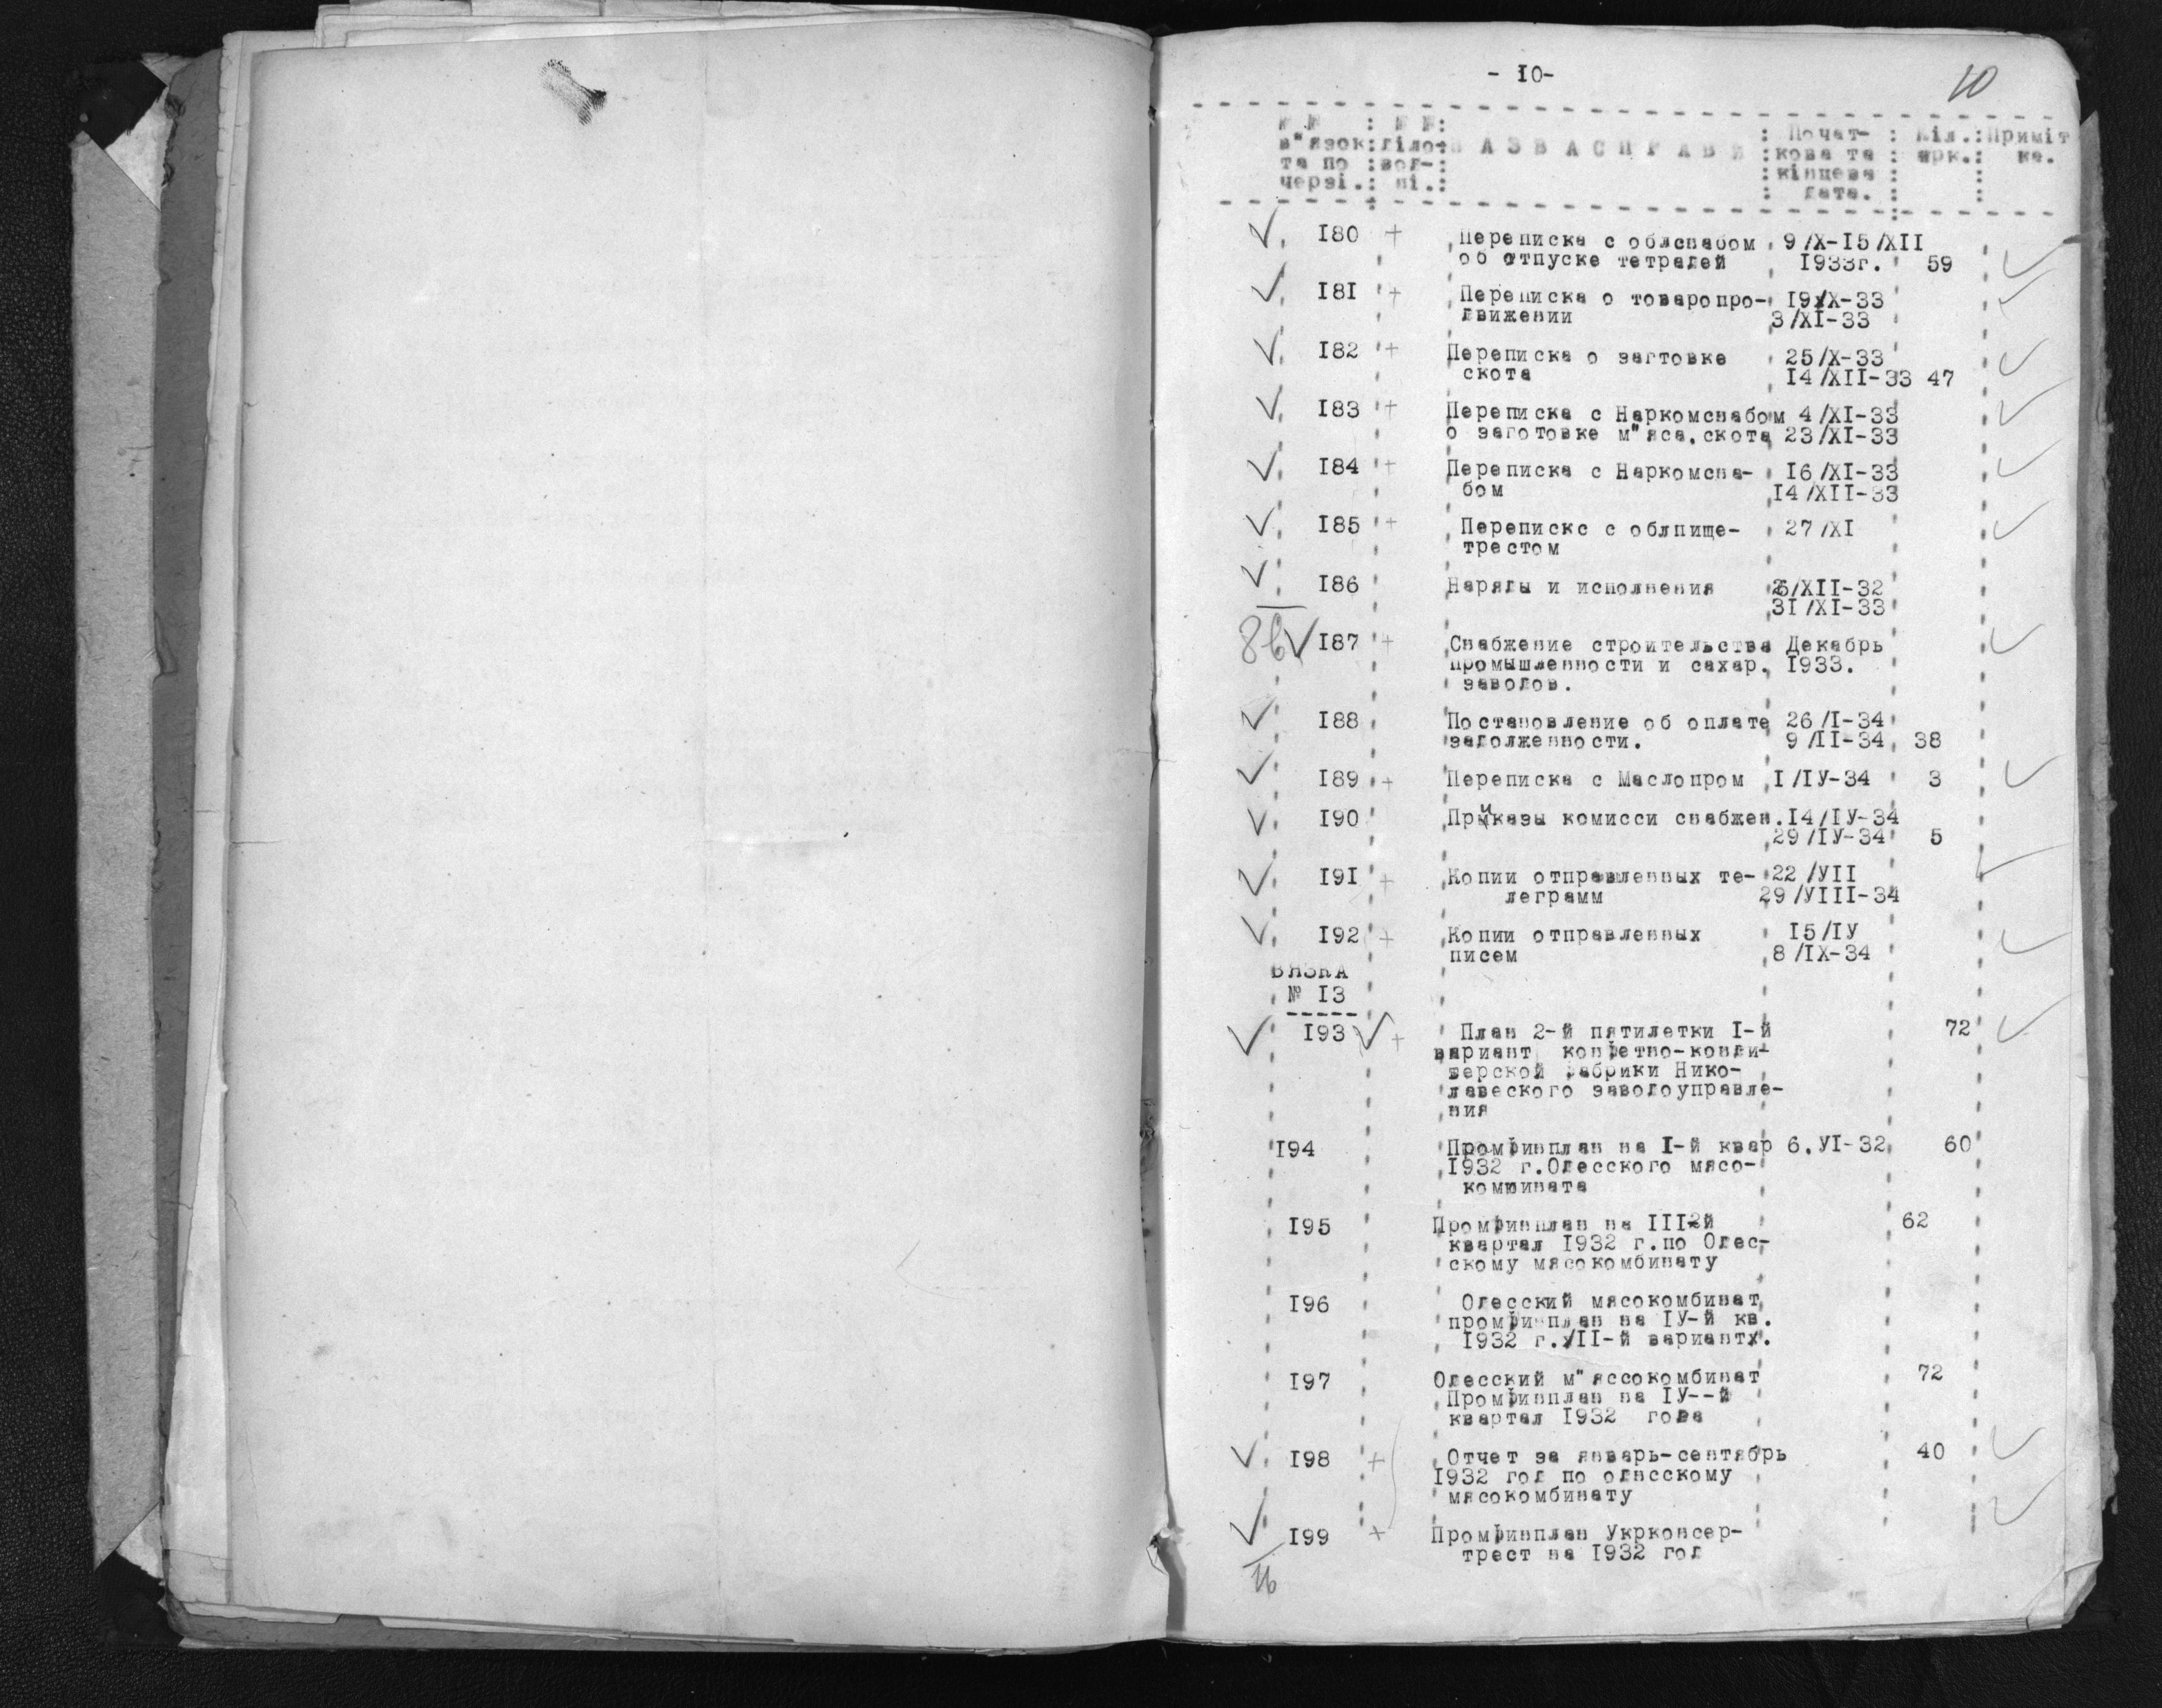 - I0-
10
№ № : № №: : Почат- : Кіл.:Приміт
в"язок:діло-:Н А З В А С П Р А В И :кова та : арк.: ка.
та по :вод- : :кінцева :
черзі.: ні.: : дата. :
I80 + Переписка с облснабом 9/X-I5/XII
об отпуске тетрадей I933г. 59
I8I + Переписка о товаропро- I9/X-33
движении 3/XI-33
I82 + Переписка о загтовке 25/X-33
скота I4/XII-33 47
I83 + Переписка с Наркомснабом 4/XI-33
о заготовке м"яса.скота 23/XI-33
I84 + Переписка с Наркомсна- I6/XI-33
бом I4/XII-33
I85 + Перепискс с облпище- 27/XI
трестом
I86 Наряды и исполнения /XII-32
3I/XI-33
86 I87 + Снабжение строительства Декабрь
промышленности и сахар. I933.
заводов.
I88 Постановление об оплате 26/I-34
задолженности. 9/II-34 38
I89 + Переписка с Маслопром I/IУ-34 3
I90 Приказы комисси снабжен.I4/IУ-34
29/IУ-34 5
I9I + Копии отправленных те- 22/УII
леграмм 29/УIII-34
I92 + Копии отправленных I5/IУ
писем 8/IX-34
ВЯЗКА
№ I3
I93 + План 2-й пятилетки I-й 72
вариант конфетно-конди-
терской фабрики Нико-
лавеского заводоуправле-
ния
I94 Промфинплан на I-й квар 6.УI-32 60
I932 г.Одесского мясо-
комбината
I95 Промфинплан на III-й 62
квартал I932 г.по Одес-
скому мясокомбинату
I96 Одесский мясокомбинат
промфинплан на IУ-й кв.
I932 г./II-й вариант/.
I97 Одесский м"ассокомбинат 72
Промфинплан на IУ--й
квартал I932 года
I98 + Отчет за январь-сентябрь 40
I932 год по одасскому
мясокомбинату
I99 + Промфинплан Укрконсер-
трест на I932 год
16